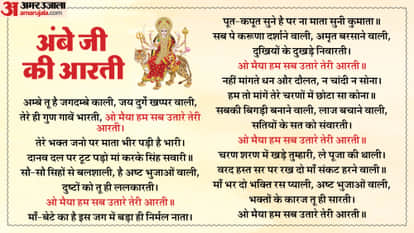 अमर उजाला
amarujala.com
अंबे जी
की आरती
अम्बे तू है जगदम्बे काली, जय दुर्गे खप्पर वाली,
तेरे ही गुण गावें भारती, ओ मैया हम सब उतारे तेरी
आरती।
तेरे भक्त जनो पर माता भीर पड़ी है भारी।
दानव दल पर टूट पड़ो मां करके सिंह सवारी॥
सो-सो सिहों से बलशाली, है अष्ट भुजाओं वाली,
दुष्टों को तू ही ललकारती।
ओ मैया हम सब उतारे तेरी आरती॥
माँ-बेटे का है इस जग में बड़ा ही निर्मल नाता।
पूत-कपूत सुने है पर ना माता सुनी कुमाता॥
सब पे करूणा दर्शाने वाली, अमृत बरसाने वाली,
दुखियों के दुखड़े निवारती।
ओ मैया हम सब उतारे तेरी आरती॥
नहीं मांगते धन और दौलत, न चांदी न सोना।
हम तो मांगें तेरे चरणों में छोटा सा कोना॥
सबकी बिगड़ी बनाने वाली, लाज बचाने वाली,
सतियों के सत को संवारती।
ओ मैया हम सब उतारे तेरी आरती॥
चरण शरण में खड़े तुम्हारी, ले पूजा की थाली।
वरद हस्त सर पर रख दो माँ संकट हरने वाली॥
माँ भर दो भक्ति रस प्याली, अष्ट भुजाओं वाली,
भक्तों के कारज तू ही सारती।
ओ मैया हम सब उतारे तेरी आरती॥